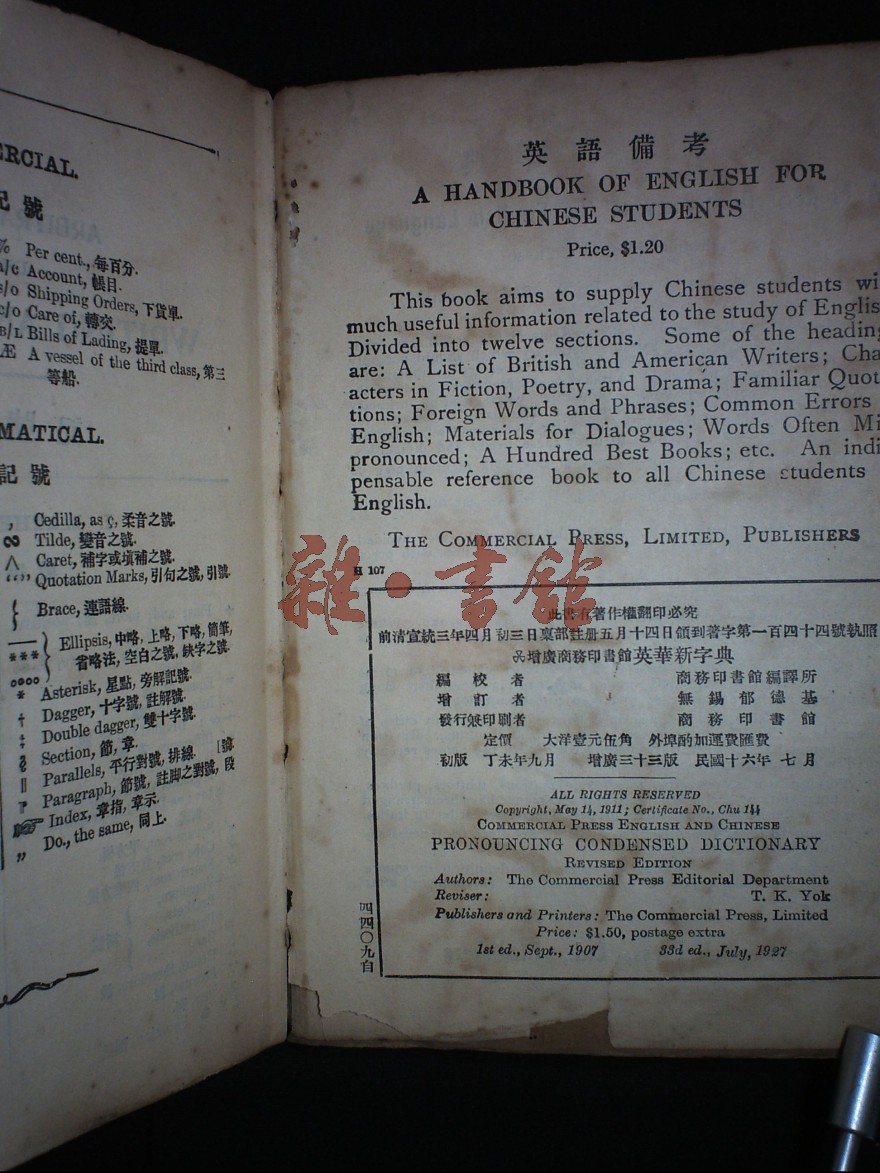 ERCIAL.
記號
% Per cent., 每百分.
a/c Account, 帳目.
s/o Shipping Orders, 下貨單.
c/o Care of, 轉交.
B/L Bills of Lading, 提單.
Æ A vessel of the third class, 第三
等船.
MATICAL.
記號
¸ Cedilla, as ç, 柔音之號.
Tilde, 變音之號.
∧ Caret, 補字或塡補之號.
“ ” Quotation Marks, 引句之號, 引號.
{ Brace, 連語線.
Ellipsis, 中略, 上略, 下略, 簡筆,
省略法, 空白之號, 缺字之號.
* Asterisk, 星點, 旁解記號.
† Dagger, 十字號, 註解號.
‡ Double dagger, 雙十字號.
§ Section, 節, 章.
‖ Parallels, 平行對號, 排線. [號.
¶ Paragraph, 節號, 註脚之對號, 段
☞ Index, 章指, 章示.
„ Do., the same, 同上.
英語備考
A HANDBOOK OF ENGLISH FOR
CHINESE STUDENTS
Price, $1.20
This book aims to supply Chinese students wi
much useful information related to the study of Englis
Divided into twelve sections. Some of the heading
are: A List of British and American Writers; Cha
acters in Fiction, Poetry, and Drama; Familiar Quot
tions; Foreign Words and Phrases; Common Errors
English; Materials for Dialogues; Words Often Mi
pronounced; A Hundred Best Books; etc. An indi
pensable reference book to all Chinese students
English.
THE COMMERCIAL PRESS, LIMITED, PUBLISHERS
H 107
雜·書館
此書有著作權翻印必究
前清宣統三年四月初三日稟部註册五月十四日領到著字第一百四十四號執照
增廣商務印書館英華新字典
編校者 商務印書館編譯所
增訂者 無錫郁德基
發行兼印刷者 商務印書館
定價 大洋壹元伍角 外埠酌加運費匯費
初版 丁未年九月 增廣三十三版 民國十六年七月
ALL RIGHTS RESERVED
Copyright, May 14, 1911; Certificate No., Chu 144
COMMERCIAL PRESS ENGLISH AND CHINESE
PRONOUNCING CONDENSED DICTIONARY
REVISED EDITION
Authors: The Commercial Press Editorial Department
Reviser: T. K. Yok
Publishers and Printers: The Commercial Press, Limited
Price: $1.50, postage extra
1st ed., Sept., 1907 33d ed., July, 1927
四四〇九自